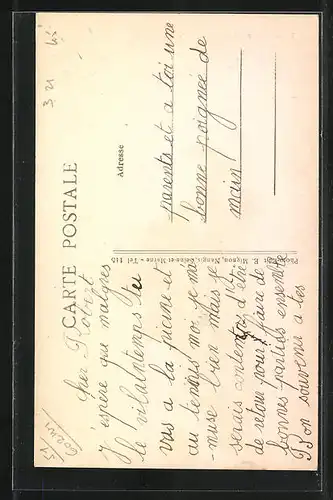 CARTE POSTALE
Adresse
E. Mignon, Nangis, Seine-et-Marne - Tél 115
Cher Robert
J'éspère que malgres
le vilain temps tu
vas a la picine et
au tennis moi je m'a-
muse bien mais je
serais d'être
de retour pour faire de
bonnes parties ensemble
Bon souvenir a tes
parents et a toi une
bonne poignée de
main!